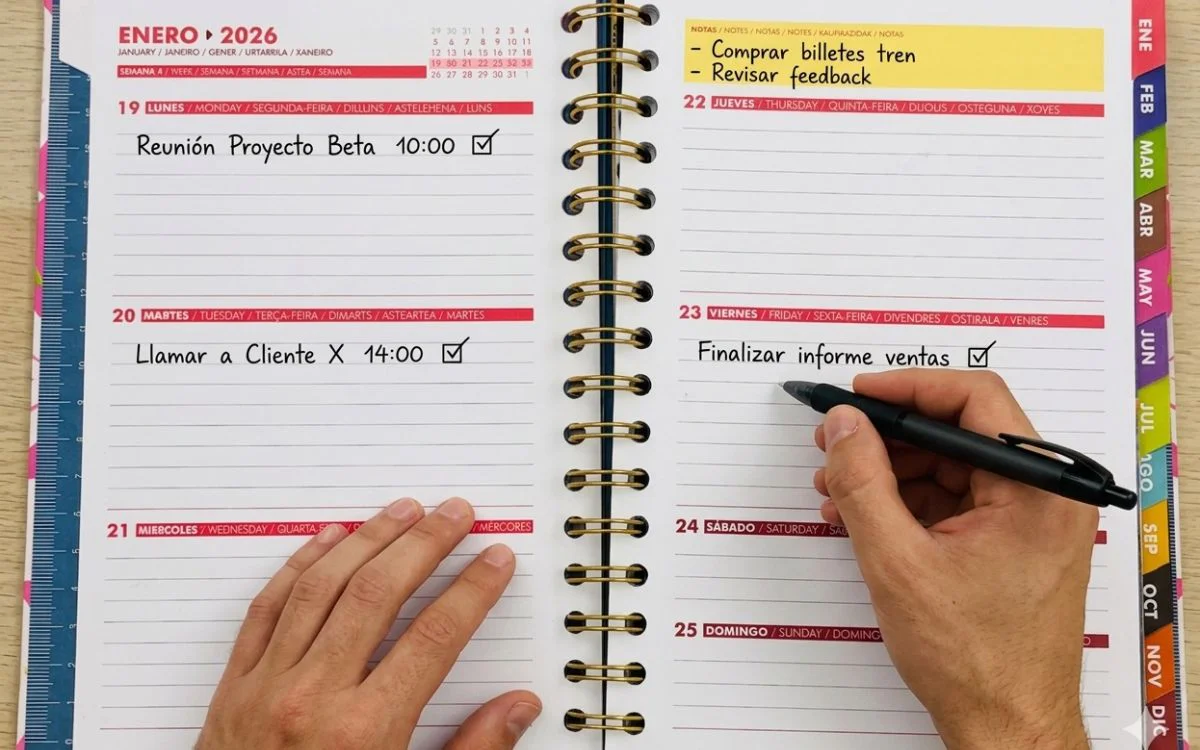 ENERO ▸ 2026
JANUARY / JANEIRO / GENER / URTARRILA / XANEIRO
SEMANA 4 / WEEK / SEMANA / SETMANA / ASTEA / SEMANA
29 30 31 1 2 3 4
5 6 7 8 9 10 11
12 13 14 15 16 17 18
19 20 21 22 32 33
26 27 28 29 30 31 1
19 LUNES / MONDAY / SEGUNDA-FEIRA / DILLUNS / ASTELEHENA / LUNS
Reunión Proyecto Beta 10:00 ☑
20 MARTES / TUESDAY / TERÇA-FEIRA / DIMARTS / ASTEARTEA / MARTES
Llamar a Cliente X 14:00 ☑
21 MIERCOLES / WEDNESDAY / QUARTA / MÉRCORES
NOTAS / NOTES / NOTAS / NOTES / NOTAS
- Comprar billetes tren
- Revisar feedback
22 JUEVES / THURSDAY / QUINTA-FEIRA / DIJOUS / OSTEGUNA / XOVES
23 VIERNES / FRIDAY / SEXTA-FEIRA / DIVENDRES / OSTIRALA / VENRES
Finalizar informe ventas ☑
24 SÁBADO / SATURDAY
25 DOMINGO / SUNDAY / DOMING
ENE
FEB
MAR
ABR
MAY
JUN
JUL
AGO
SEP
OCT
NOV
DIC